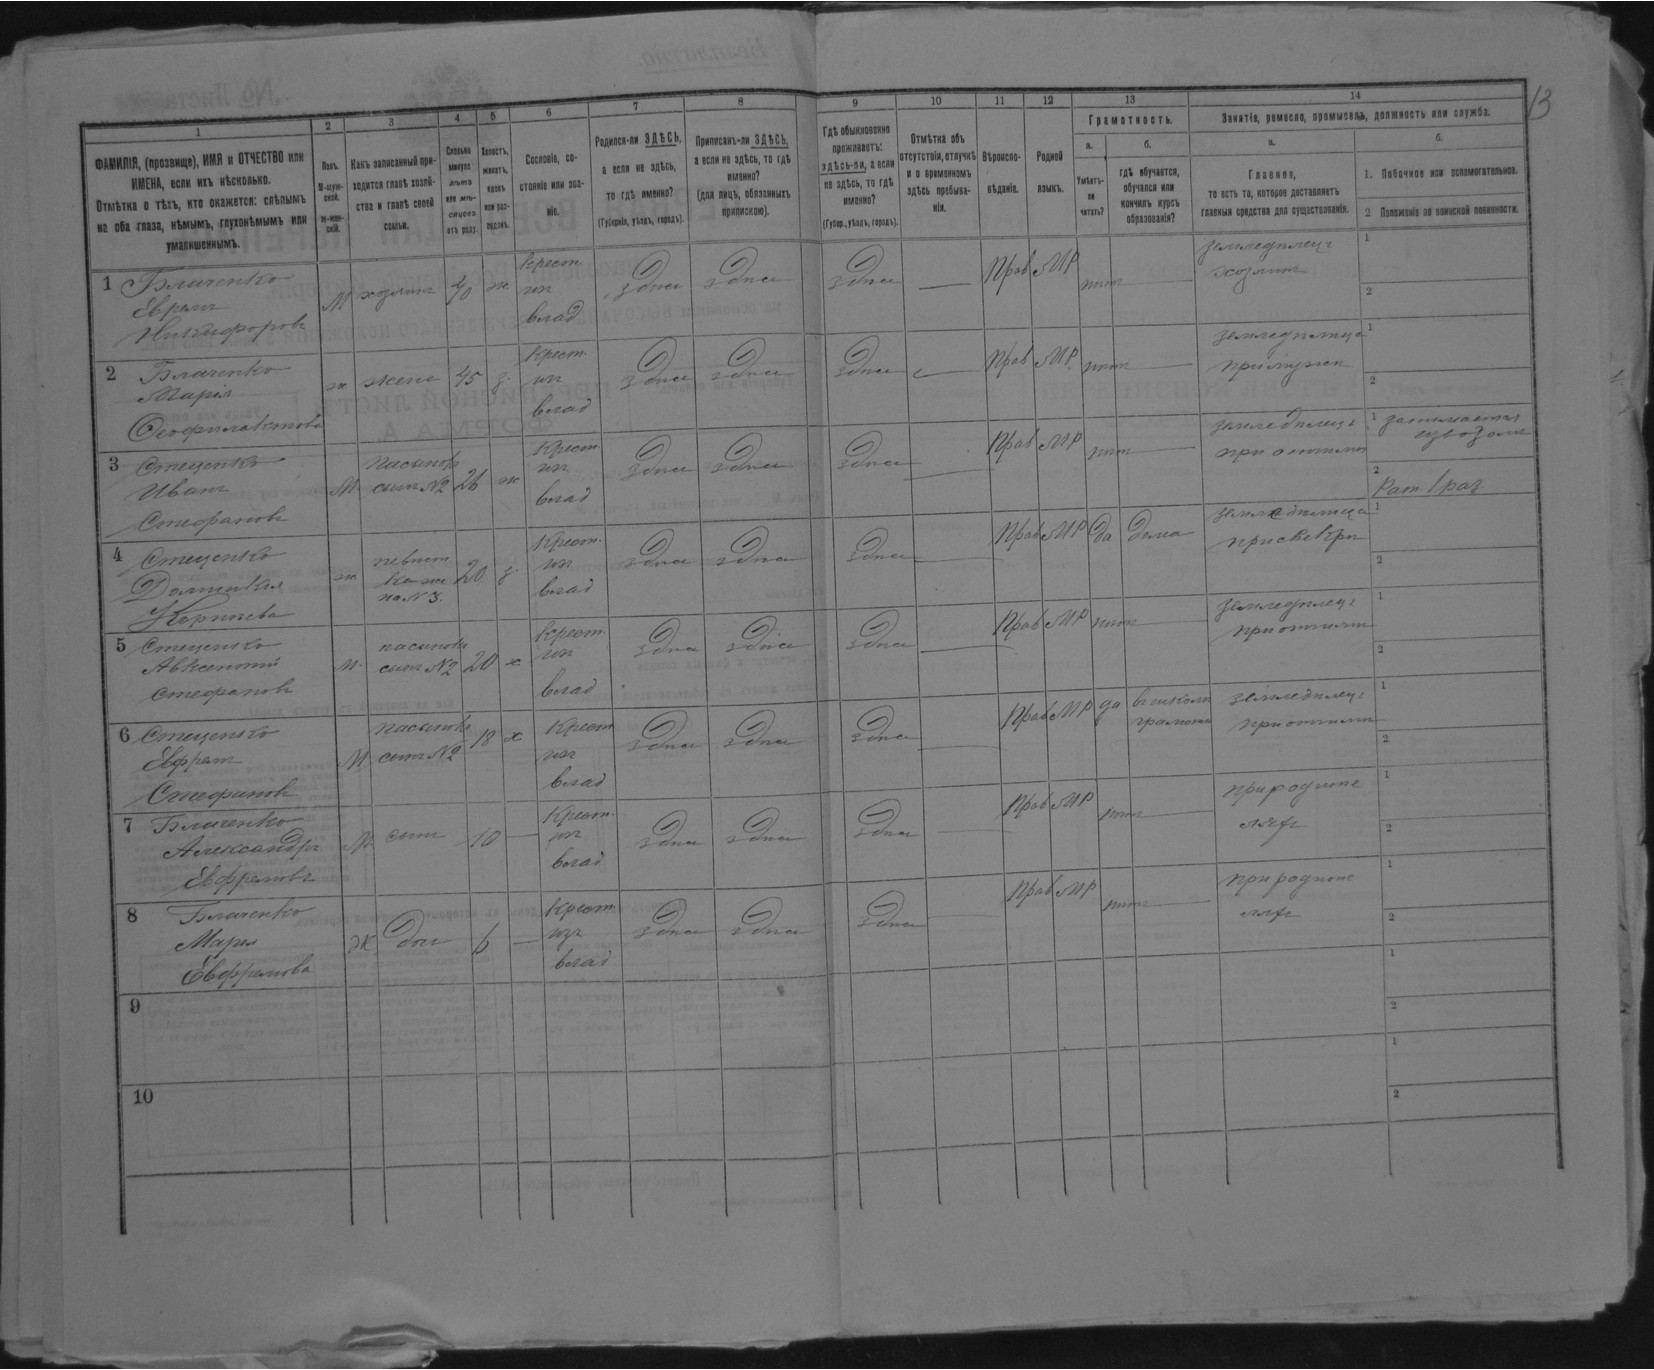 13
1
2
3
4
5
6
7
8
9
10
11
12
13
14
ФАМИЛІЯ, (прозвище), ИМЯ и ОТЧЕСТВО или
ИМЕНА, если ихъ нѣсколько.
Отмѣтка о тѣхъ, кто окажется: слѣпымъ
на оба глаза, нѣмымъ, глухонѣмымъ или
умалишеннымъ.
Полъ.
М-муж-
ской.
Ж-жен-
скій.
Какъ записанный при-
ходится главѣ хозяй-
ства и главѣ своей
семьи.
Сколько
минуло
лѣтъ
или мѣ-
сяцевъ
отъ роду.
Холостъ,
женатъ,
вдовъ
или раз-
веденъ.
Сословіе, со-
стояніе или зва-
ніе.
Родился-ли ЗДѢСЬ,
а если не здѣсь,
то гдѣ именно?
(Губернія, уѣздъ, городъ).
Приписанъ-ли ЗДѢСЬ,
а если не здѣсь, то гдѣ
именно?
(для лицъ, обязанныхъ
припискою).
Гдѣ обыкновенно
проживаетъ:
здѣсь-ли, а если
не здѣсь, то гдѣ
именно?
(Губер., уѣздъ, городъ).
Отмѣтка объ
отсутствіи, отлучкѣ
и о временномъ
здѣсь пребыва-
ніи.
Вѣроиспо-
вѣданіе.
Родной
языкъ.
Грамотность.
а.
Умѣетъ-
ли
читать?
б.
гдѣ обучается,
обучался или
кончилъ курсъ
образованія?
Занятіе, ремесло, промыселъ, должность или служба.
а.
Главное,
то есть то, которое доставляетъ
главныя средства для существованія.
б.
1. Побочное или вспомогательное.
2 Положеніе по воинской повинности.
1
Никифоровъ
М
хозяинъ
40
ж
крест.
изъ
влад
здѣсь
здѣсь
здѣсь
—
Прав
МР
нѣтъ
земледѣлецъ
хозяинъ
1
2
2
Марія
Феофилактова
ж
жена
45
з.
крест.
изъ
влад
здѣсь
здѣсь
здѣсь
Прав
МР.
нѣтъ
земледѣлица
при мужѣ
1
2
3
Стеценко
Иванъ
Стефановъ
М.
пасынокъ
сынъ №2
26
ж
крест
изъ
влад
здѣсь
здѣсь
здѣсь
—
Прав
МР
нѣтъ
земледѣлецъ
при отчимѣ
1 занимается
извозомъ
2
Рат. 1 раз.
4
Стеценко
ж
невѣст
ка же
на №3.
20
з.
Крест.
изъ
влад
здѣсь
здѣсь
здѣсь
—
Прав
МР
да
дома
земледѣлица
при свекрѣ
1
2
5
Стеценко
Авксентій
Стефановъ
М.
пасынокъ
сынъ №2
20
х
крест.
изъ
влад
здѣсь
здѣсь
здѣсь
—
Прав
МР
нѣтъ
земледѣлецъ
при отчимѣ
1
2
6
Стеценко
Ефремъ
Стефановъ
М
пасынокъ
сынъ №2
18
х
Крест
изъ
влад
здѣсь
здѣсь
здѣсь
—
Прав
МР
да
въ школѣ
грамоты
земледѣлецъ
при отчимѣ
1
2
7
Александръ
Евфремовъ
М.
сынъ
10
—
Крест.
изъ
влад
здѣсь
здѣсь
здѣсь
—
Прав
МР
нѣтъ
при родите
ляхъ
1
2
8
Евфремова
ж
Дочь
6
—
Крест
изъ
влад
здѣсь
здѣсь
здѣсь
—
Прав
МР
нѣтъ
при родите
ляхъ
1
2
9
1
2
10
1
2